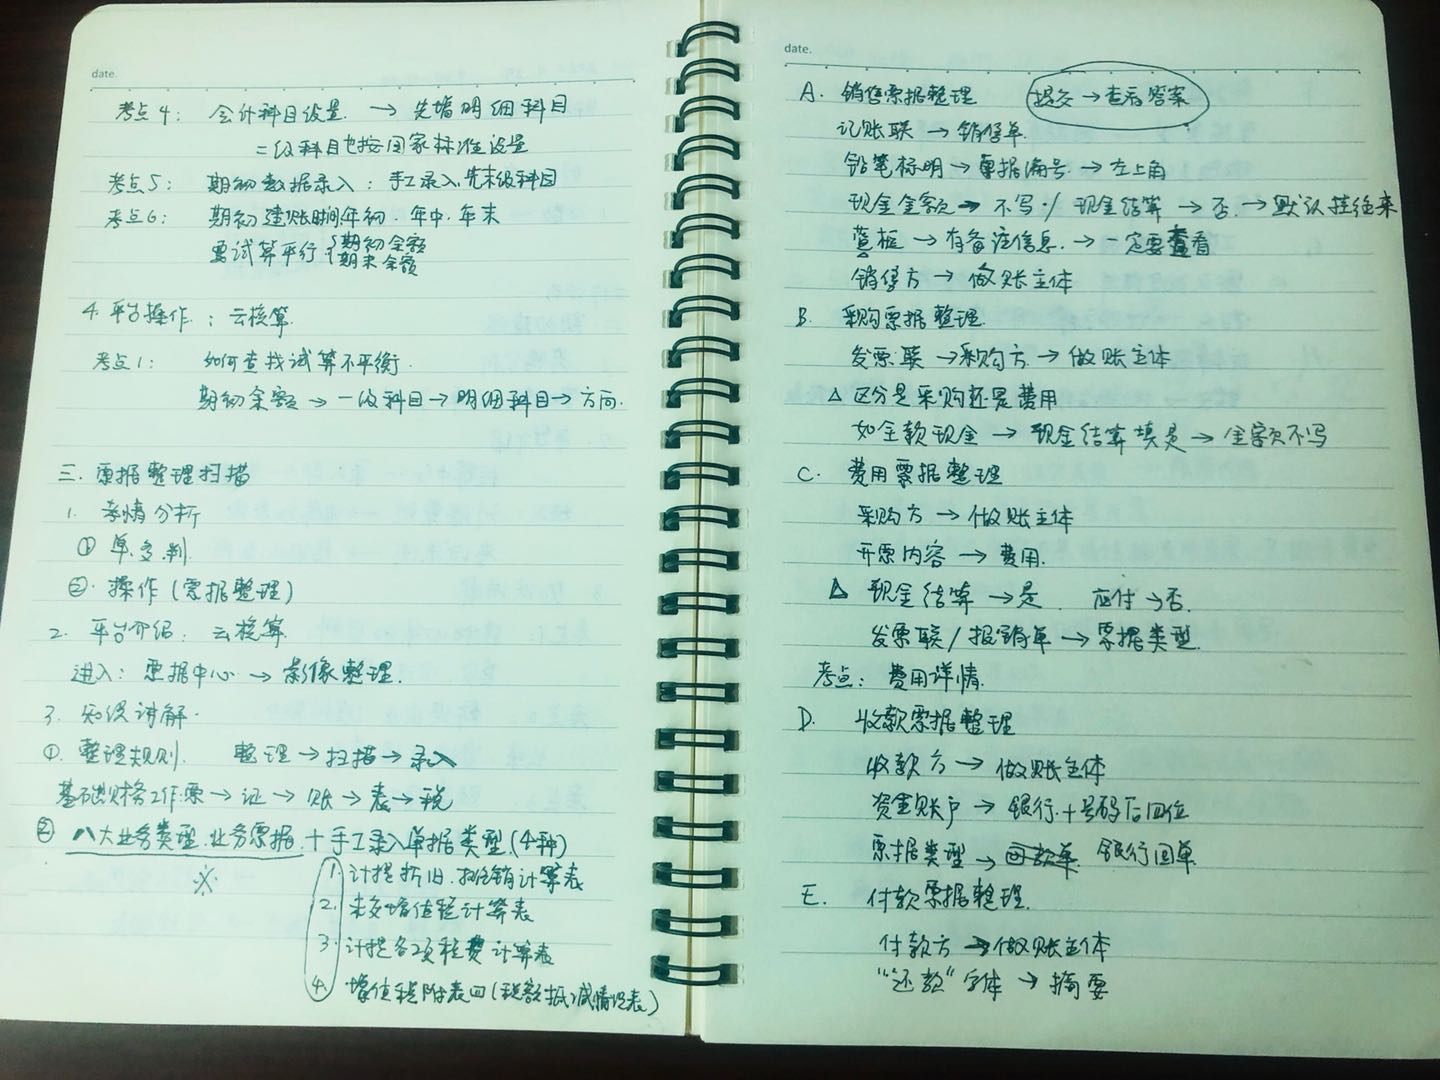 date.
考点4: 会计科目设置 → 先增明细科目
二级科目也按国家标准设置
考点5: 期初数据录入: 手工录入,先末级科目
考点6: 期初建账时间,年初.年中.年末
要试算平行{期初余额
期末余额
4. 平台操作: 云核算
考点1: 如何查找试算不平衡.
期初余额 → 一级科目 → 明细科目 → 方向.
三. 票据整理扫描
1. 考情分析
① 单.多.判.
②. 操作(票据整理)
2. 平台介绍: 云核算
进入: 票据中心 → 影像整理.
3. 知识讲解.
①. 整理规则. 整理 → 扫描 → 录入
基础财务工作:票 → 证 → 账 → 表 → 税
② 八大业务类型.业务票据.+手工录入单据类型(4种)
※
1. 计提折旧.摊销计算表
2. 未交增值税计算表
3. 计提各项税费计算表
4. 增值税附表四(税额抵减情况表)
date.
A. 销售票据整理 提交 → 查看答案
记账联 → 销售单.
铅笔标明 → 票据编号. → 左上角
现金金额 → 不写 / 现金结算 → 否. → 默认挂往来
蓝框 → 有备注信息. → 一定要查看
销售方 → 做账主体
B. 采购票据整理.
发票联 → 采购方 → 做账主体
△ 区分是采购还是费用
如全款现金 → 现金结算填是 → 金额不写
C. 费用票据整理
采购方 → 做账主体
开票内容 → 费用.
△ 现金结算 → 是. 应付 → 否.
发票联/报销单 → 票据类型.
考点: 费用详情.
D. 收款票据整理
收款方 → 做账主体
资金账户 → 银行+号码后四位
票据类型 → 银行回单
E. 付款票据整理.
付款方 → 做账主体
"还款"字体 → 摘要